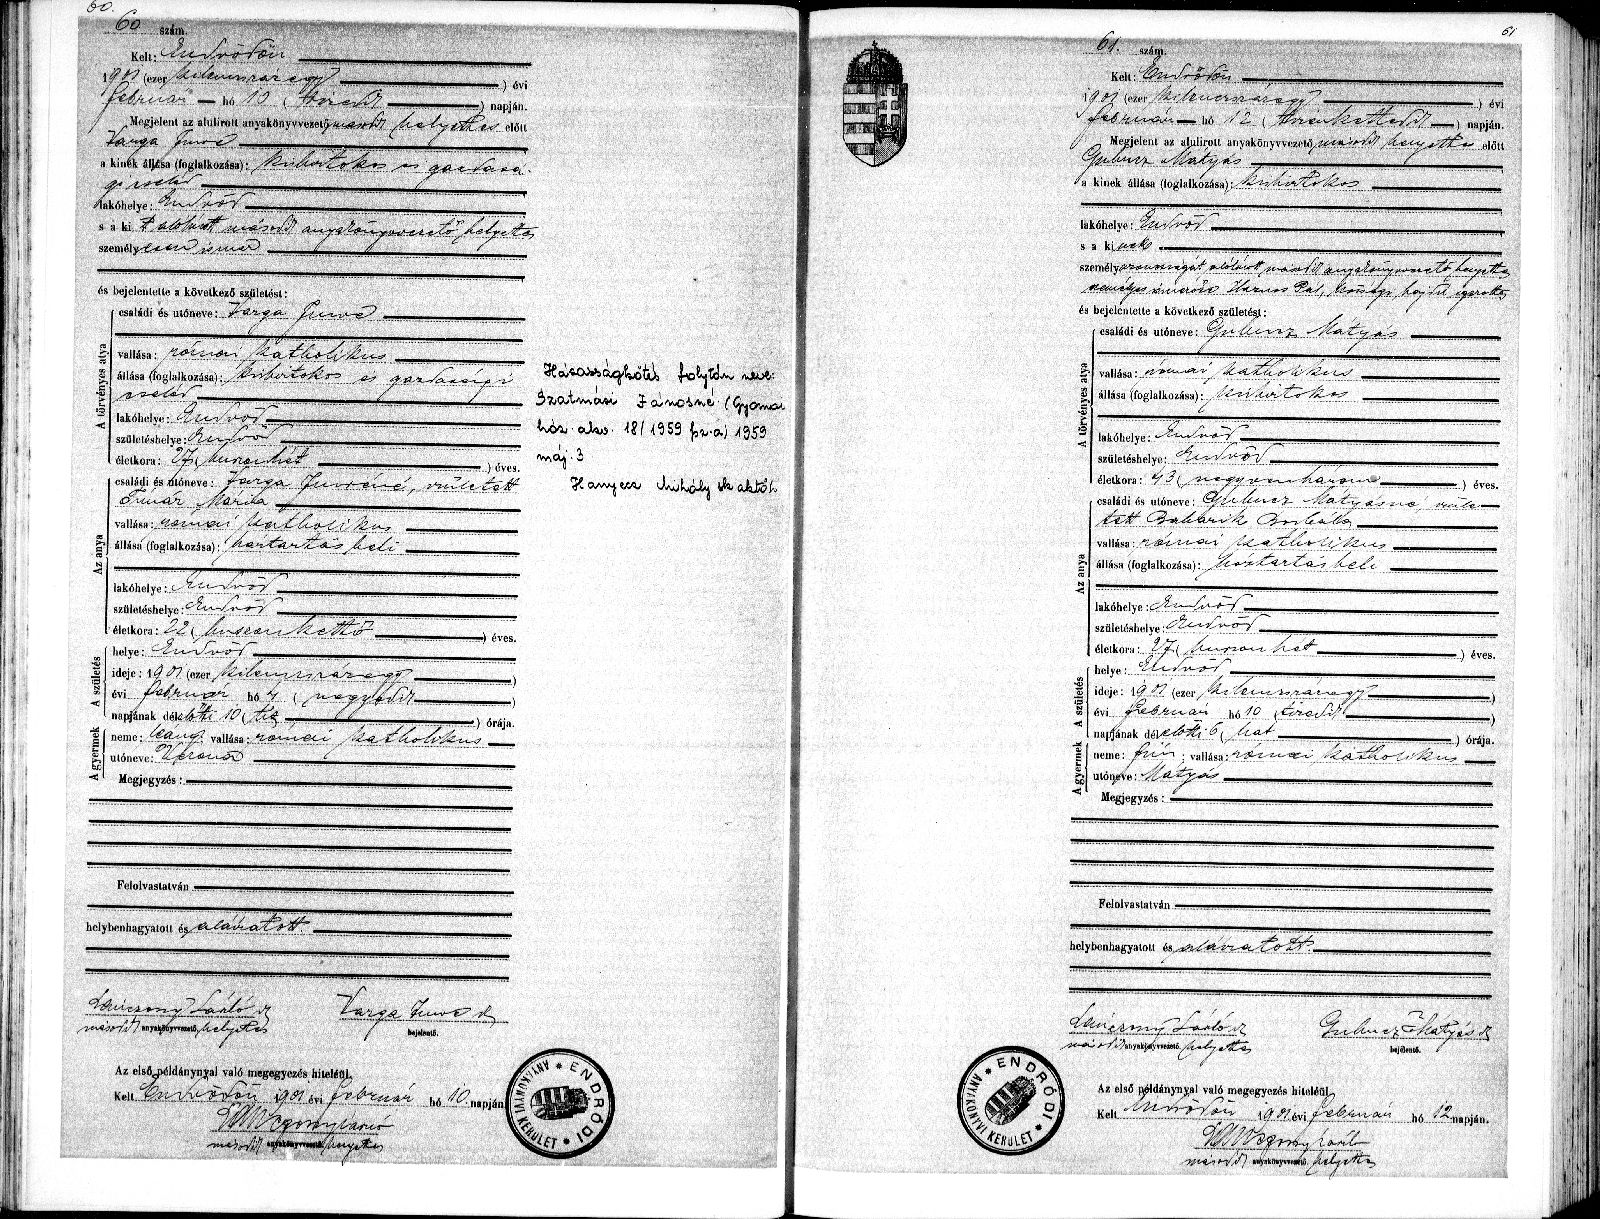 60.
60 szám.
Kelt: Endrődön
1901 (ezer kilenczszázegy) évi
február hó 10 (tizedik) napján.
Megjelent az alulirott anyakönyvvezető másodk helyettes előtt
Varga Imre
a kinek állása (foglalkozása): kisbirtokos és gazdasá-
gi cseléd
lakóhelye: Endrőd
s a kit alólirott másodk anyakönyvvezető helyettes
személyesen ismer
és bejelentette a következő születést:
A törvényes atya
családi és utóneve: Varga Imre
vallása: római katholikus
állása (foglalkozása): kisbirtokos és gazdasági
cseléd
lakóhelye: Endrőd
születéshelye: Endrőd
életkora: 27 (huszonhét) éves.
Az anya
családi és utóneve: Varga Imréné, született
Tímár Mária
vallása: római katholikus
állása (foglalkozása): háztartásbeli
lakóhelye: Endrőd
születéshelye: Endrőd
életkora: 22 (huszonkettő) éves.
A születés
helye: Endrőd
ideje: 1901 (ezer kilenczszázegy)
évi február hó 4 (negyedik)
napjának délelőtti 10 (tíz) órája.
A gyermek
neme: leány; vallása: római katholikus
utóneve: Verona
Megjegyzés:
Felolvastatván
helybenhagyatott és aláiratott.
László Varga Imre
másodk anyakönyvvezető helyettes bejelentő.
Az első példánynyal való megegyezés hiteléül.
Kelt Endrődön 1901 évi február hó 10 napján
másodk anyakönyvvezető helyettes
ENDRŐDI ANYAKÖNYVI KERÜLET
Házasságkötés folytán neve:
Szatmári Jánosné (Gyoma
ház. akv. 18/1959 fsz.a) 1959
máj. 3
Hanyecz Mihály sk aktőh.
61
61. szám.
Kelt: Endrődön
1901 (ezer kilenczszázegy) évi
február hó 12 (tizenkettedik) napján.
Megjelent az alulirott anyakönyvvezető másodk helyettes előtt
Gubucz Mátyás
a kinek állása (foglalkozása): kisbirtokos
lakóhelye: Endrőd
s a kinek
személyazonosságát alólirott másodk anyakönyvvezető helyettes
személyes ismerőse Harnos Pál, községi hajdú igazolta
és bejelentette a következő születést:
A törvényes atya
családi és utóneve: Gubucz Mátyás
vallása: római katholikus
állása (foglalkozása): kisbirtokos
lakóhelye: Endrőd
születéshelye: Endrőd
életkora: 43 (negyvenhárom) éves.
Az anya
családi és utóneve: Gubucz Mátyásné, szüle-
tett Babarik Borbála
vallása: római katholikus
állása (foglalkozása): háztartásbeli
lakóhelye: Endrőd
születéshelye: Endrőd
életkora: 27 (huszonhét) éves.
A születés
helye: Endrőd
ideje: 1901 (ezer kilenczszázegy)
évi február hó 10 (tizedik)
napjának délelőtti 6 (hat) órája.
A gyermek
neme: fiú; vallása: római katholikus
utóneve: Mátyás
Megjegyzés:
Felolvastatván
helybenhagyatott és aláiratott.
László Gubucz Mátyás
másodk anyakönyvvezető helyettes bejelentő.
Az első példánynyal való megegyezés hiteléül.
Kelt Endrődön 1901 évi február hó 12 napján.
másodk anyakönyvvezető helyettes
ENDRŐDI ANYAKÖNYVI KERÜLET